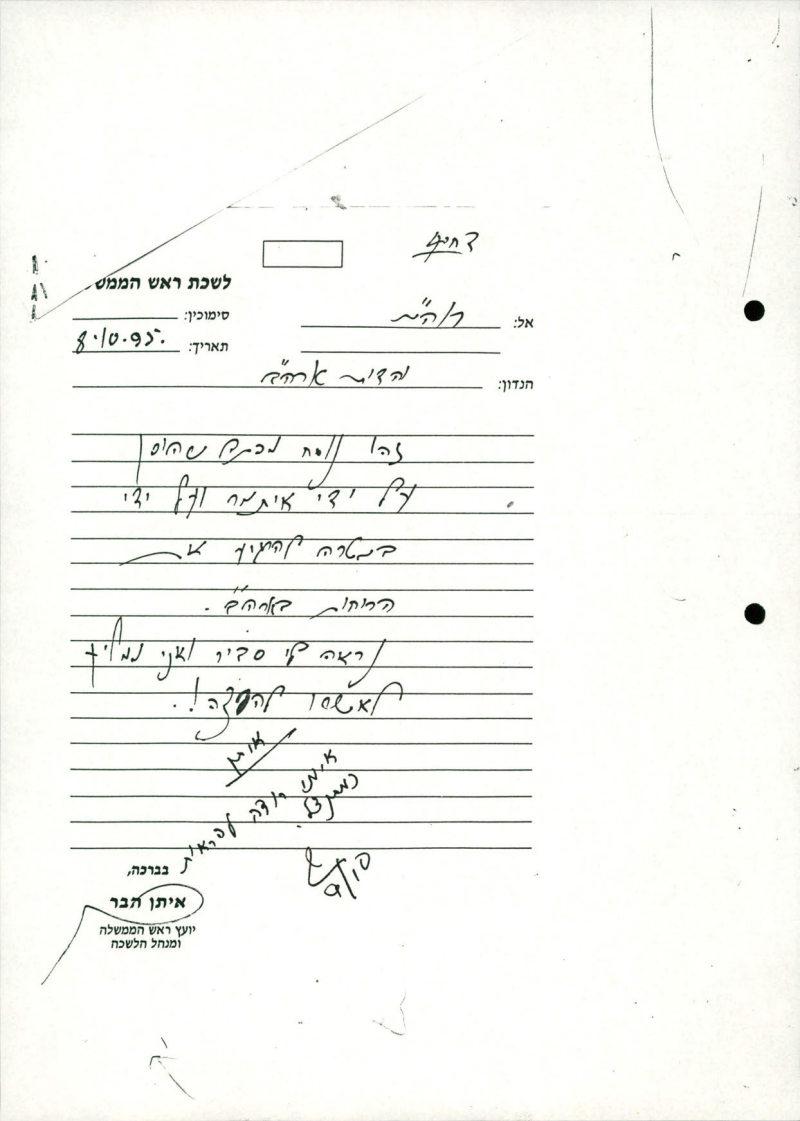 דחוף
לשכת ראש הממש
אל: רוה"מ
סימוכין:
תאריך: 8.10.95
הנדון: יהדות ארה"ב
זהו נוסח מכתב שהוסכן
על ידי איתמר ועל ידי
במטרה להרגיע את
הרוחות בארה"ב.
נראה לי סביר ואני ממליץ
לאשרו להפצה!
איתן
בברכה,
איתן הבר
יועץ ראש הממשלה
ומנהל הלשכה